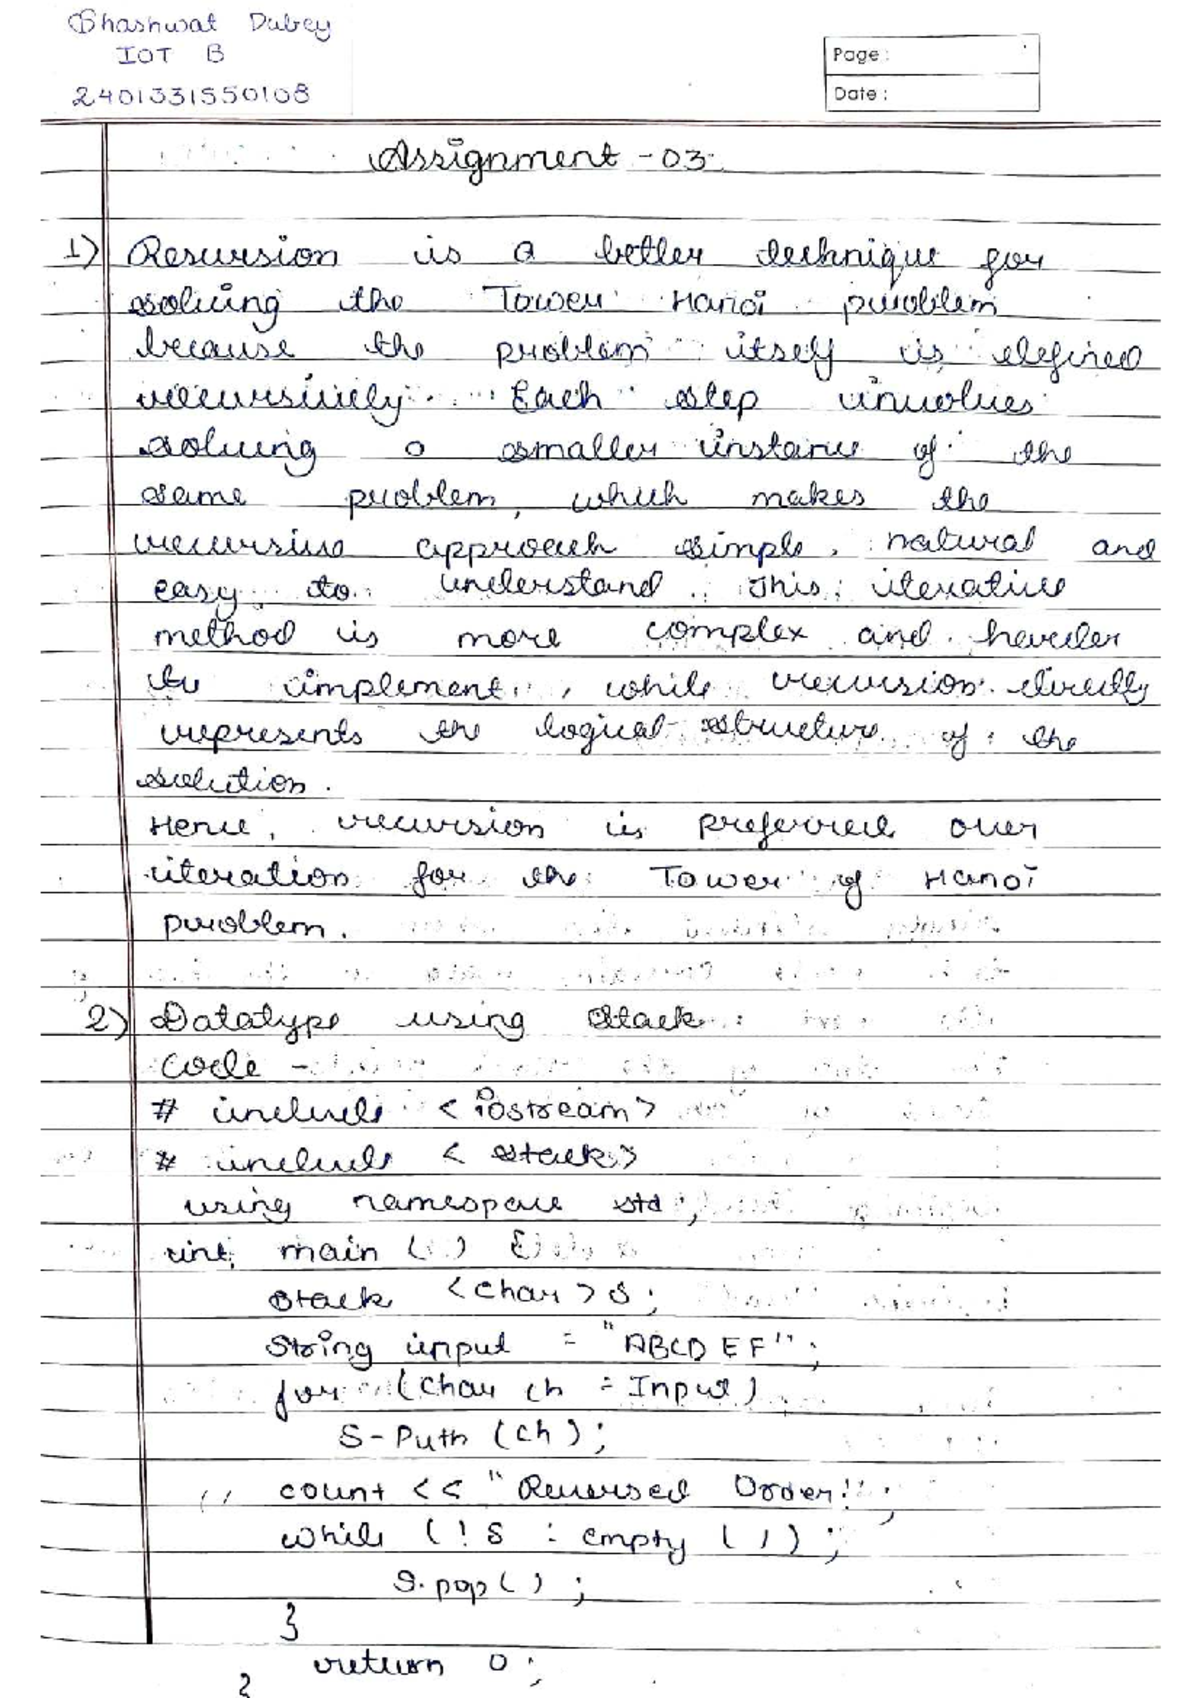 Shashwat Dubey
IOT B
2401331550108
Page :
Date :
Assignment - 03
1) Recursion is a better technique for
solving the Tower Hanoi problem
because the problem itself is defined
recursively. Each step involves
solving a smaller instance of the
same problem, which makes the
recursive approach simple, natural and
easy to understand. This iterative
method is more complex and harder
to implement, while recursion directly
represents the logical structure of the
solution.
Hence, recursion is preferred over
iteration for the Tower of Hanoi
problem.
2) Datatype using Stack :
Code -
# include <iostream>
# include < stack>
using namespace std ;
int main ( ) {
Stack <char > S ;
String input = "ABCD EF" ;
for (char ch = Input )
S - Puth (ch) ;
count << "Reversed Order:" ;
while ( ! S : empty ( ) ) ;
S. pop ( ) ;
}
return 0 ;
}